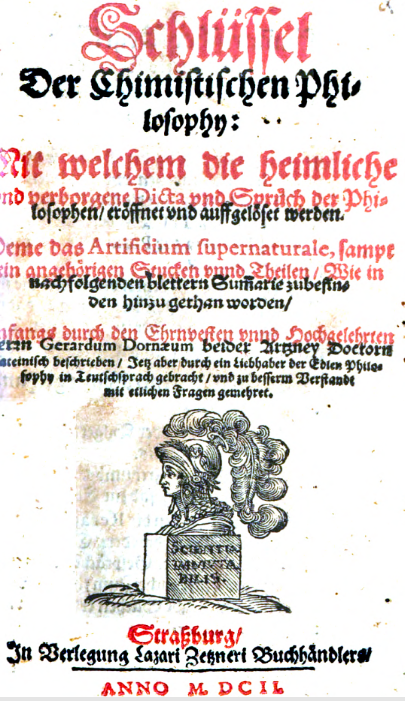 Schlüssel
Der Chimistischen Phi-
losophy:
Mit welchem die heimliche
vnd verborgene Dicta vnd Sprüch der Phi-
losophen/ eröffnet vnd auffgelöset werden.
Deme das Artificium supernaturale, sampt
ein angehörigen Stucken vnnd Theilen/ Wie in
nachfolgenden blettern Sum̃arie zubefin-
den hinzu gethan worden/
nfangs durch den Ehrnvesten vnnd Hochgelehrten
errn Gerardum Dornæum beider Artzney Doctorn
ateinisch beschrieben/ Jetz aber durch ein Liebhaber der Edlen Philo-
sophy in Teutschsprach gebracht/ vnd zu besserm Verstandt
mit etlichen Fragen gemehret.
SCIENTIA
IMMVTA
BILIS.
Straßburg/
In Verlegung Lazari Zetzneri Buchhändlers/
ANNO M. DCII.